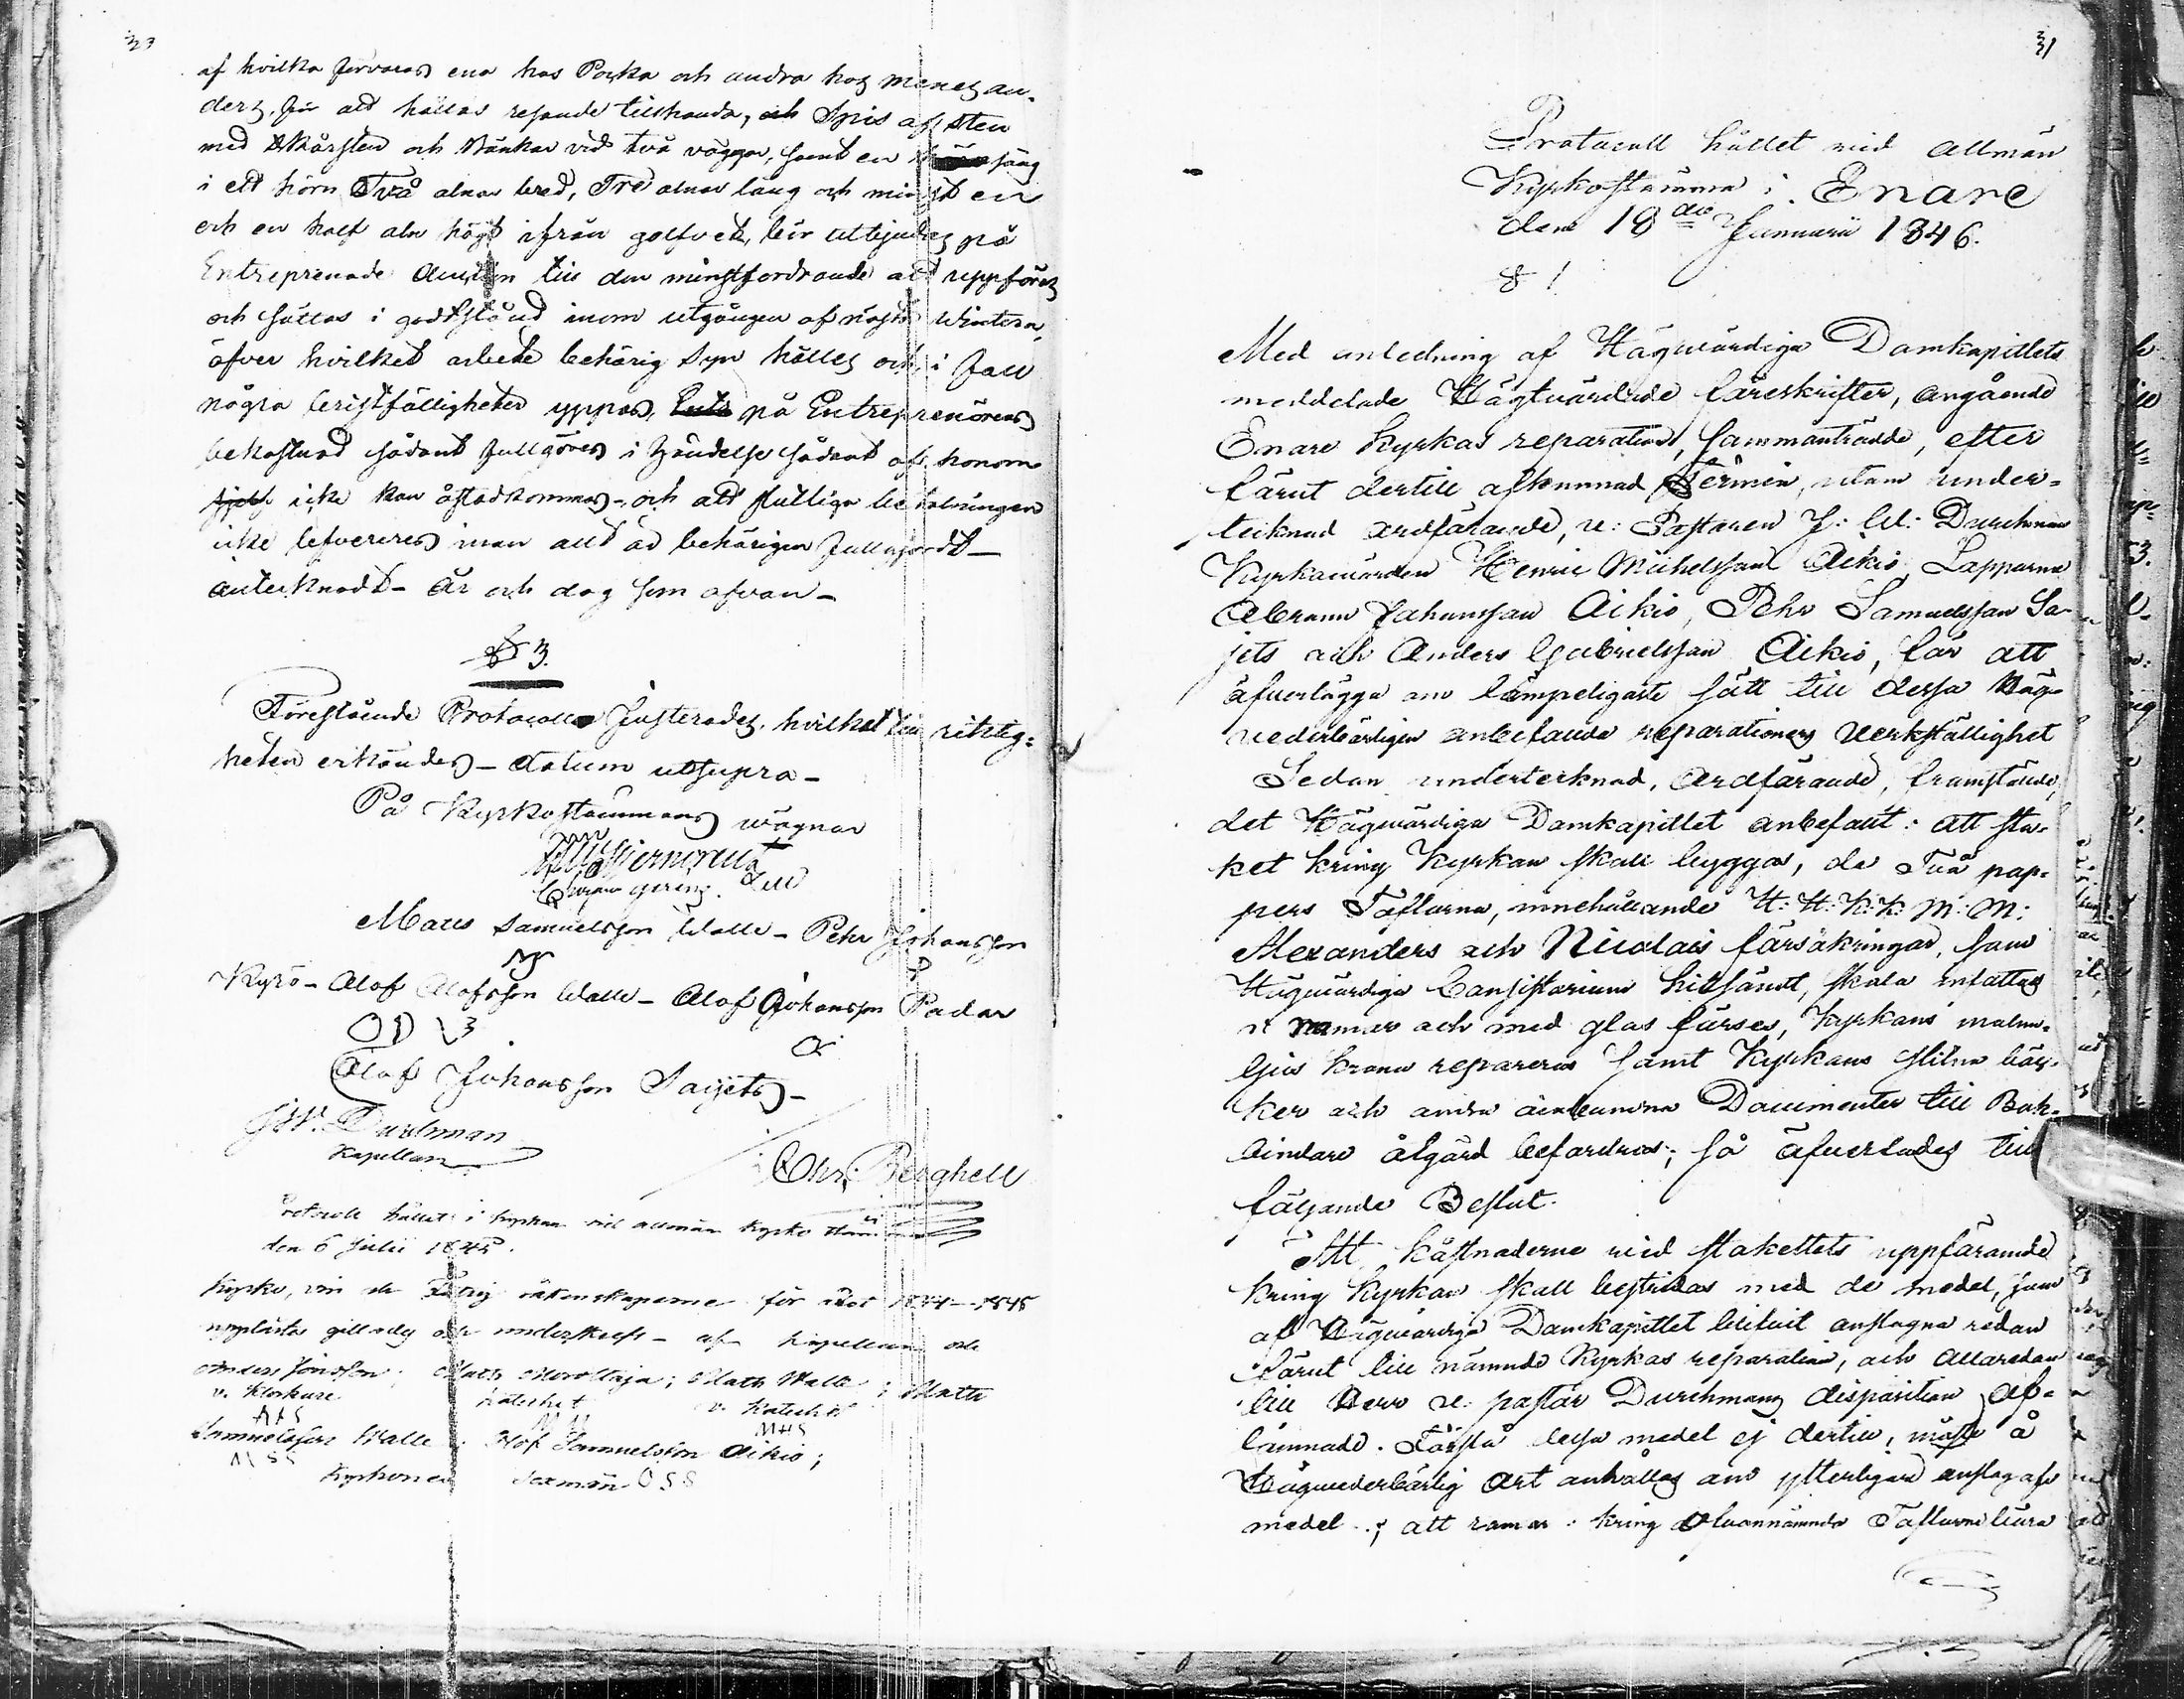 af hvilka förvaras ena hos Pocka och andra hos Menes an-
ders, för att hållas resande tillhanda, och Spis af sten
med Skårsten och Bänkar vid två väggar, samt en säng
i ett hörn Två alnar bred, Tre alnar lång och minst en
och en half aln högt ifrån golfvet, bör utbjudes på
Entreprenade Auction till den minstfordrande att uppföras
och sättas i godt stånd inom utgången af nästa Wintern,
öfver hvilket arbete behörig Syn hålles och i fall
några bristfälligheter yppas, på Entreprenörens
bekostnad sådant fullgöres i händelse sådant af honom
icke kan åstadkommas - och att slutliga betalningen
icke lefvereres innan allt är behörigen fullgjordt -
anteknadt - År och dag som ofvan -
§ 3.
Förestående Protocoll Justerades, hvilket till riktig-
heten erkändes - datum utsupra -
På Kyrkostämmans wägnar
Mats Samuelsson Walle - Pehr Johansson
Kyrö - Olof Olofsson Walle - Olof Johansson Padar
Olof Johansson Saijets -
J. W. Durchman
Kapellan
Chr: Berghell
hållet i kyrkan vid allmän kyrko stämma
den 6 Julii 1845.
Kyrko, vin och Fattig räkenskaperne för året 1844-1845
upplästes gillades och underskrefs - af Kapellan och
Anders Jönsson; Mats Morottaja; Mats Walle; Matts
v. Klockare Katechet v. Katechet
AJS MM MHS
Samuelsson Walle; Olof Samuelsson Aikio;
MSS
Kyrkovärd Sexman OSS
31
Protocoll hållet vid allmän
Kyrkostämma i Enare
den 18de Januarii 1846.
§ 1
Med anledning af Högvärdiga Domkapitlets
meddelade Högtvördade föreskrifter, angående
Enare Kyrkas reparation, sammanträdde, efter
förut dertill afkunnad Termin, utom under-
tecknad ordförande, v: Pastoren J: W: Durchman
Kyrkovärden Henric Michelsson Aikio, Lapparne
Abram Johansson Aikio, Pehr Samuelsson Sa-
jets och Anders Gabrielsson Aikio, för att
öfverlägga om lämpeligaste sätt till dessa Hög-
vederbörligen anbefalda reparationers verkställighet
Sedan undertecknad, Ordförande, framstälde,
det Högvärdiga Domkapitlet anbefalt: att sta-
ket kring Kyrkan skall byggas, de Två pap-
pers Taflorna, innehållande H: H: K: K: M: M:
Alexanders och Nicolais försäkringar, som
Högvärdiga Consistorium hitsändt, skola infattas
i ramar och med glas förses, Kyrkans malm-
ljus krona repareras samt Kyrkans slitna böc-
ker och andra Documenter till Bok-
bindare åtgärd befordras; så öfverlades till
följande Beslut.
Att kåstnaderne vid stakettets uppförande
kring Kyrkan skall bestridas med de medel, som
af Högvärdiga Domkapitlet blifvit anslagna redan
förut till nämnde Kyrkas reparation, och allaredan
till Herr v: pastor Durchmans disposition af-
lämnade. Förslå dessa medel ej dertill, måste å
Högvederbörlig Ort anhållas om ytterligare anslag af
medel; att ramar kring ofvannämnde Taflorne böra